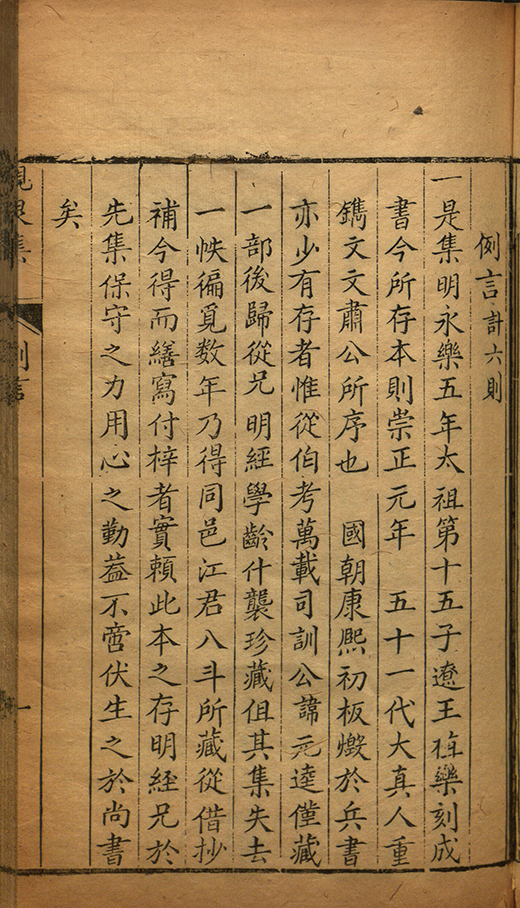 例言計六則
一是集明永樂五年太祖第十五子遼王植樂刻成
書今所存本則崇正元年 五十一代大真人重
鐫文文肅公所序也 國朝康熙初板燬於兵書
亦少有存者惟從伯考萬載司訓公諱元逵僅藏
一部後歸從兄明經學齡什襲珍藏但其集失去
一帙徧覓数年乃得同邑江君八斗所藏從借抄
補今得而繕寫付梓者實賴此本之存明經兄於
先集保守之力用心之勤葢不啻伏生之於尚書
矣
峴泉集
例言
一